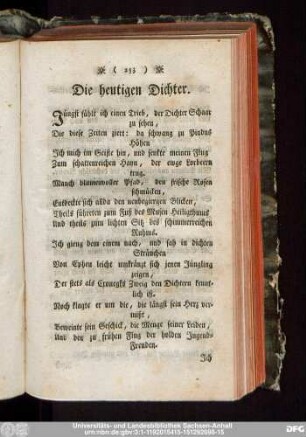 ( 253 )
Die heutigen Dichter.
Jüngst fühlt ich einen Trieb, der Dichter Schaar
zu sehen,
Die diese Zeiten ziert: da schwang zu Pindus
Höhen
Ich mich im Geiste hin, und senkte meinen Flug
Zum schattenreichen Hayn, der ewge Lorbeern
trug.
Manch blumenvoller Pfad, den frische Rosen
schmücken,
Entdeckte sich allda den neubegiergen Blicken,
Theils führeten zum Fuß des Musen Heiligthums
Und theils zum lichten Sitz des schimmerreichen
Ruhms.
Ich gieng dem einen nach, und sah in dichten
Sträuchen
Von Epheu leicht umkränzt sich jenen Jüngling
zeigen,
Der stets als Zweig den Dichtern kenntlich
ist.
Noch klagte er um die, die längst sein Herz vermißt,
Beweinte sein Geschick, die Menge seiner Leiden,
Und den zu frühen Flug der holden Jugend-
Freuden.
Ich
Universitäts- und Landesbibliothek Sachsen-Anhalt
urn:nbn:de:gbv:3:1-1192015415-151292698-15
DFG